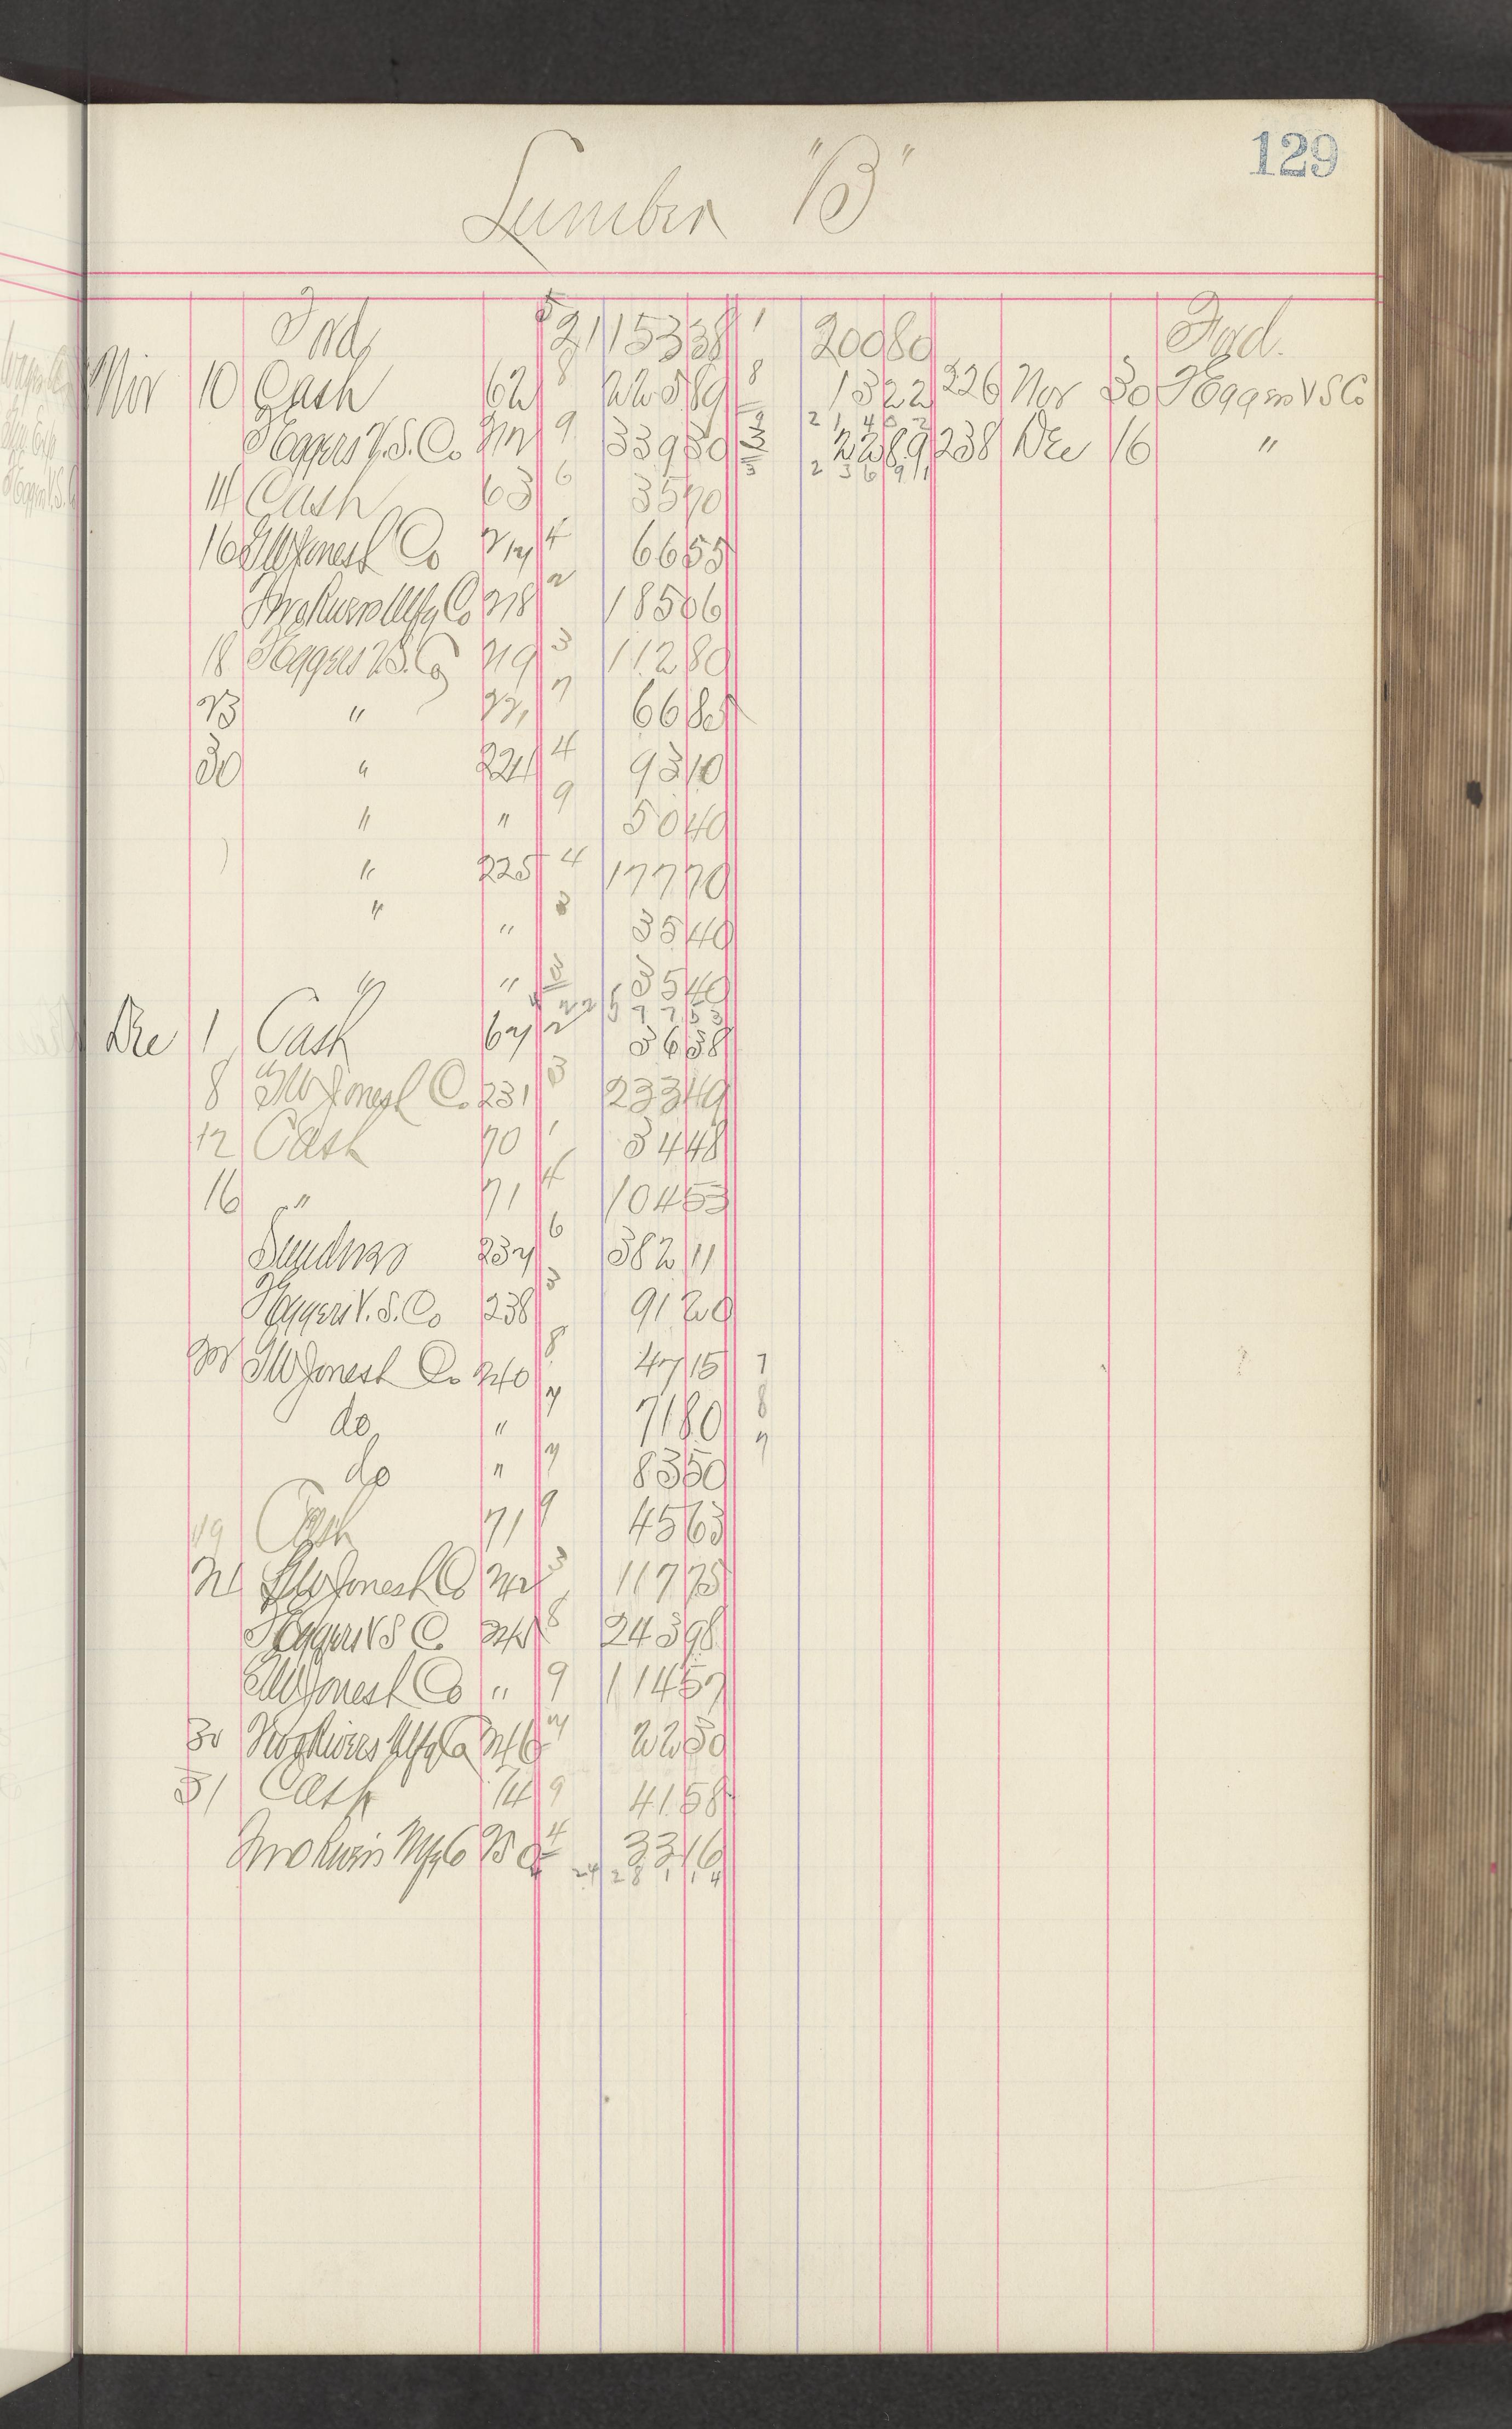 129
Lumber "B"
Fwd 5 21 153 38 1 200 80 Fwd.
Nov 10 Cash 62 8 225 89 8 13 22 226 Nov 30 F Eggers V S Co
F Eggers V. S. Co 212 9 339 30 3 22 89 238 Dec 16 "
14 Cash 63 6 35 70
16 G W Jones L Co 214 4 66 55
Two Rivers Mfg Co 218 2 185 06
18 F Eggers V. S. Co 219 3 112 80
23 " 221 7 66 85
30 " 224 4 93 10
" " 9 50 40
" 225 4 177 70
" " 3 35 40
" " 3 35 40
22 5 7 7 5 3
Dec 1 Cash 67 2 36 38
8 G W Jones L Co. 231 3 233 49
12 Cash 70 1 34 48
16 " 71 4 104 53
Sundries 237 6 382 11
F Eggers V. S. Co 238 3 91 20
G W Jones L Co 240 8 47 15 7
do " 7 71 80 8
do " 7 83 50 7
19 Cash 71 9 45 63
21 G W Jones L Co 242 3 117 75
F Eggers V S Co 8 243 98
G W Jones L Co " 9 114 57
30 Two Rivers Mfg Co 246 7 22 30
31 Cash 74 9 41 58
Two Rivers Mfg Co 250 4 33 16
24 2 8 1 1 4